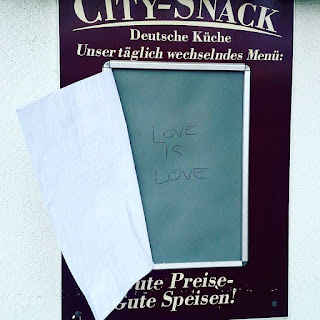 CITY-SNACK
Deutsche Küche
Unser täglich wechselndes Menü:
LOVE
IS
LOVE
ute Preise-
Gute Speisen!